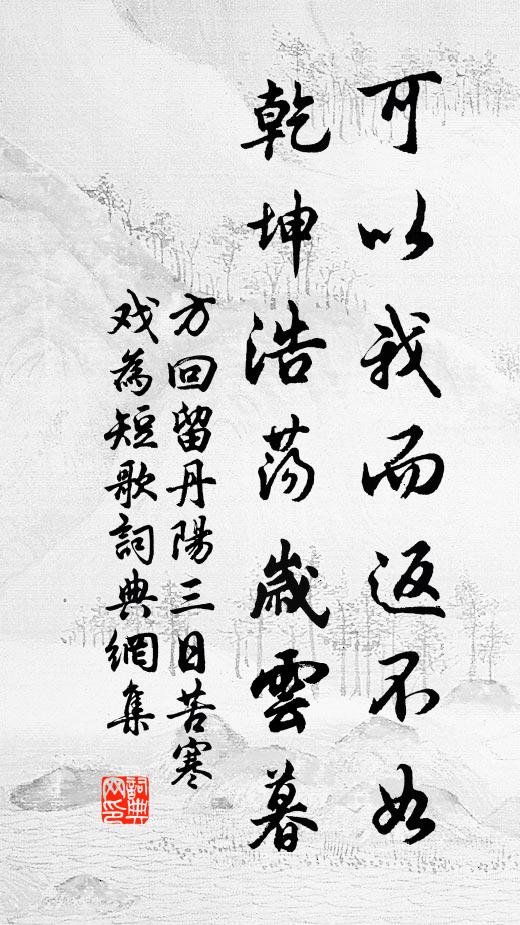 可以我而返不如
乾坤浩荡歲雲暮
方回留丹陽三日苦寒
戏為短歌詞典網集
詞典网印